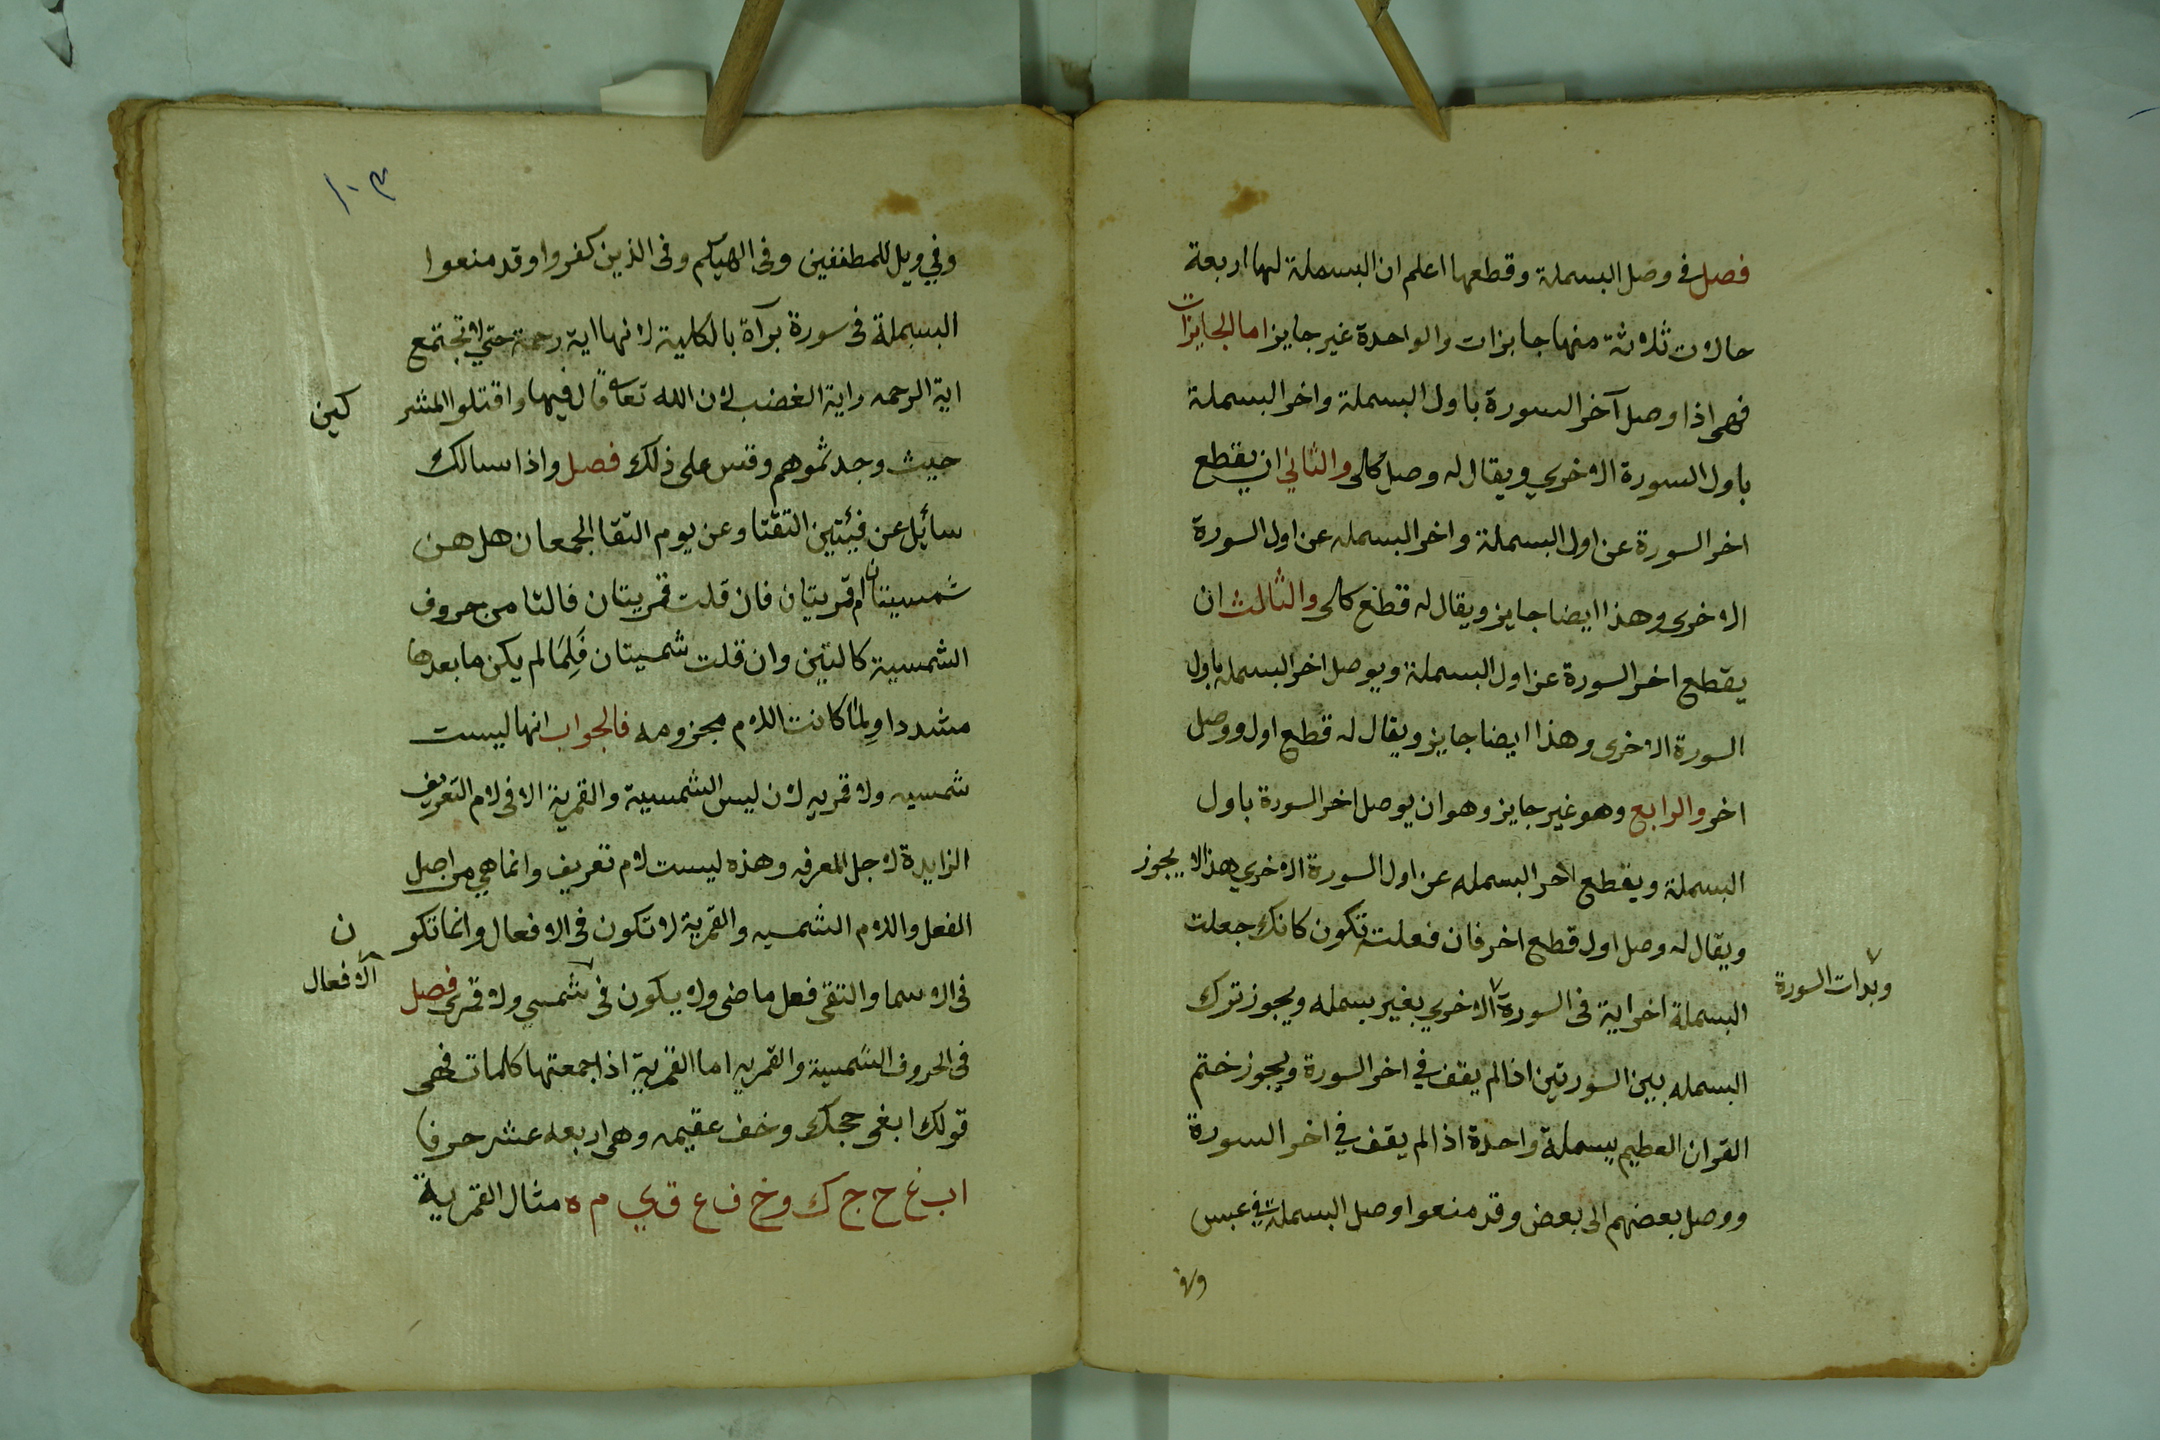 فصل في وصل البسملة وقطعها اعلم ان البسملة لها اربعة
حالات ثلاثة منها جايزات والواحدة غير جايز اما الجايزات
فهي اذا وصل آخر السورة باول البسملة واخر البسملة
باول السورة الاخري ويقال له وصل كلى والثاني ان يقطع
اخر السورة عن اول البسملة واخر البسمله عن اول السورة
الاخرى وهذا ايضا جايز ويقال له قطع كلى والثالث ان
يقطع اخر السورة عن اول البسملة ويوصل اخر البسمله باول
السورة الاخرى وهذا ايضا جايز ويقال له قطع اول ووصل
اخر والرابع وهو غير جايز وهو ان يوصل اخر السورة باول
البسملة ويقطع اخر البسمله عن اول السورة الاخري هذا لا يجوز
ويقال له وصل اول قطع اخر فان فعلت تكون كانك جعلت
البسملة اخر اية في السورة الاخري بغير بسمله ويجوز ترك
وبدات السورة
البسمله بين السورتين اذا لم يقف في اخر السورة ويجوز ختم
القران العظيم ببسملة واحدة اذا لم يقف في اخر السورة
ووصل بعضهم الى بعض وقد منعوا وصل البسملة في عبس
وفي
١٠٣
وفي ويل للمطففين وفى الهيكم وفى الذين كفروا وقد منعوا
البسملة فى سورة برآة بالكلية لانها اية رحمة حتي لا تجتمع
اية الرحمه واية الغضب لان الله تعا قال فيها واقتلوا المشر
كين
حيث وجدتموهم وقس على ذلك فصل واذا سالك
سائل عن فيئتين التقتا وعن يوم التقا الجمعان هل هن
شمسيتان ام قمريتان فان قلت قمريتان فالتا من حروف
الشمسية كالتين وان قلت شمسيتان فلما لم يكن ما بعدها
مشددا ولما كانت اللام مجزومه فالجواب انها ليست
شمسيه ولا قمريه لان ليس الشمسية والقمرية الا فى لام التعريف
الزايدة لاجل المعرفه وهذه ليست لام تعريف وانما هي من اصل
الفعل واللام الشمسيه والقمرية لا تكون فى الافعال وانما تكو
ن
فى الاسما والتقى فعل ماضى ولا يكون فى شمسي ولا قمرى فصل
الافعال
فى الحروف الشمسية والقمريه اما القمرية اذا جمعتها كلمات فهى
قولك ابغى حجك وخف عقيمه وهي اربعه عشر حرفا
ا ب غ ح ج ك و خ ف ع ق ي م ه مثال القمرية